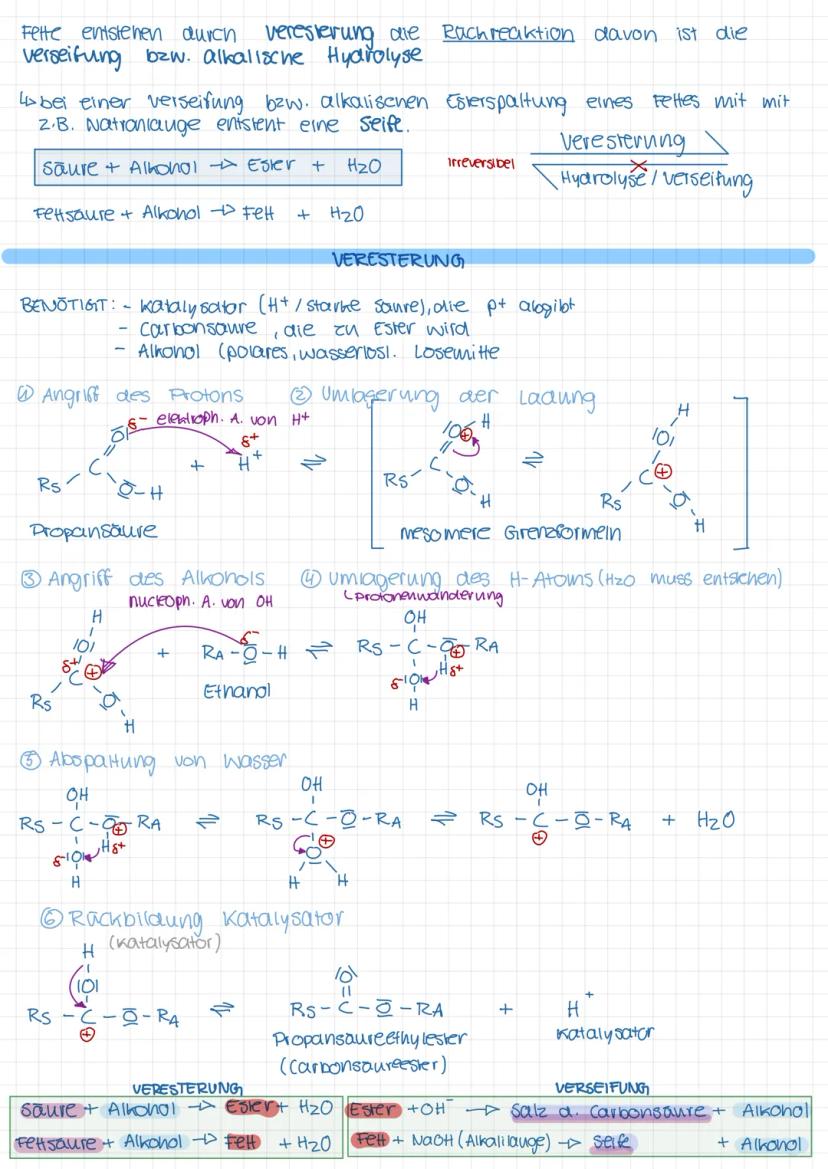 Fette entstehen durch Veresterung die Rückreaktion davon ist die
Verseifung bzw. alkalische Hydrolyse
↳ bei einer Verseifung bzw. alkalischen Esterspaltung eines Fettes mit mit
z.B. Natronlauge entsteht eine Seife.
Säure + Alkohol → Ester + H2O
irreversibel
Veresterung
Hydrolyse / Verseifung
Fettsäure + Alkohol → Fett + H2O
VERESTERUNG
BENÖTIGT: - Katalysator (H+ / starke Säure), die p+ abgibt
- Carbonsäure, die zu Ester wird
- Alkohol (polares, wasserlösl. Lösemitte
① Angriff des Protons ② Umlagerung der Ladung
δ- elektroph. A. von H+
δ+
Rs C O O-H + H+ ⇌ Rs C O H ⊕ O H ⇌ H O Rs C ⊕ O H
Propansäure mesomere Grenzformeln
③ Angriff des Alkohols ④ Umlagerung des H-Atoms (H2O muss entstehen)
nucleoph. A. von OH ↳ Protonenwanderung
H O δ+ C ⊕ Rs O H + RA - O - H δ- ⇌ OH Rs - C - O - RA ⊕ H δ+ δ- O H
Ethanol
⑤ Abspaltung von Wasser
OH OH OH
Rs - C - O - RA ⇌ Rs - C - O - RA ⇌ Rs - C - O - RA + H2O
⊕ H δ+ δ- O ⊕ O ⊕
H H H
⑥ Rückbildung Katalysator
H (Katalysator)
|O| |O|
Rs - C - O - RA ⇌ Rs - C - O - RA + H+
⊕ Propansäureethylester Katalysator
(Carbonsäureester)
VERESTERUNG VERSEIFUNG
Säure + Alkohol → Ester + H2O Ester + OH- → Salz d. Carbonsäure + Alkohol
Fettsäure + Alkohol → Fett + H2O Fett + NaOH (Alkalilauge) → Seife + Alkohol